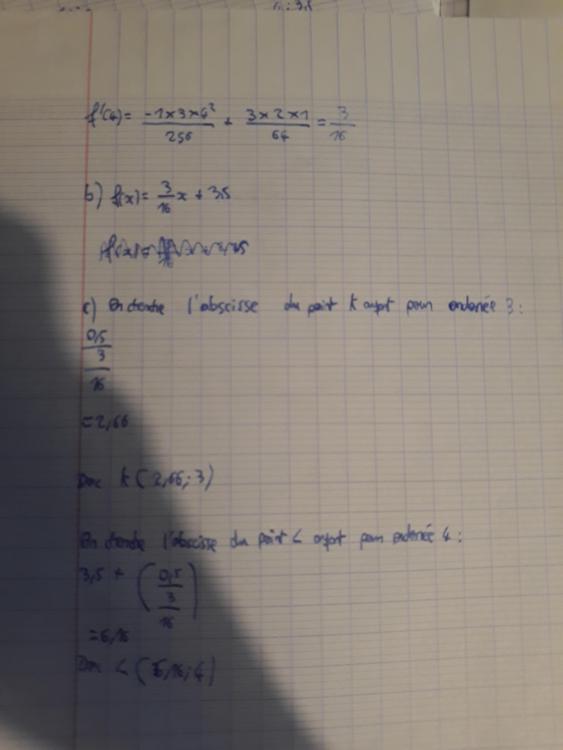 f'(4) = \frac{-1×3×4²}{256} + \frac{3×2×1}{64} = \frac{3}{16}
b) f(x) = \frac{3}{16}x + 3,5
c) On cherche l'abscisse du point K ayant pour ordonnée 3 :
\frac{0,5}{\frac{3}{16}}
= 2,66
Donc K (2,66 ; 3)
On cherche l'abscisse du point L ayant pour ordonnée 4 :
3,5 + (\frac{0,5}{\frac{3}{16}})
= 6,16
Donc L (6,16 ; 4)